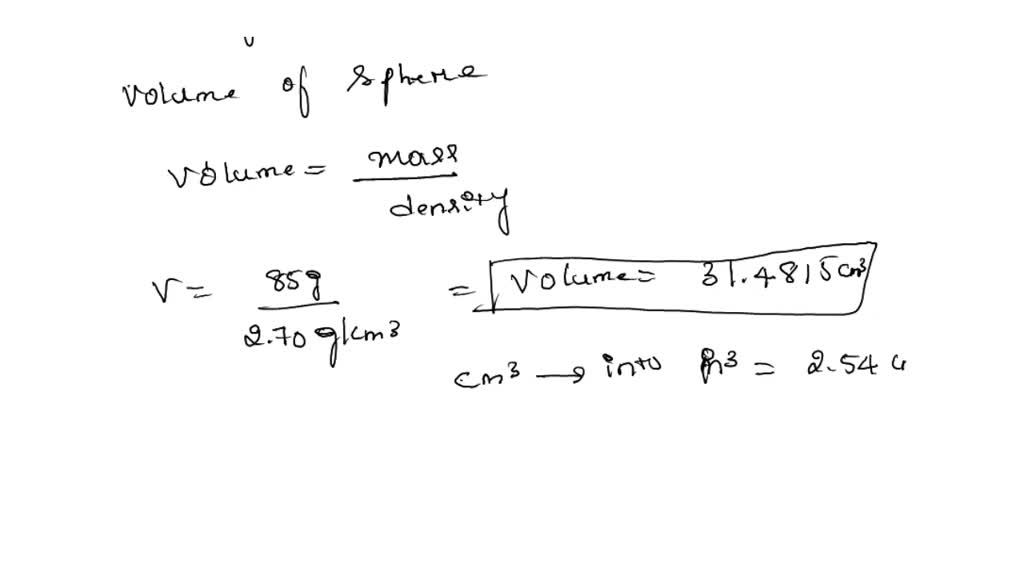 volume of sphere
volume = mass / density
V = 85g / 2.70 g/cm³ = volume = 31.4815 cm³
cm³ → into in³ = 2.54 c